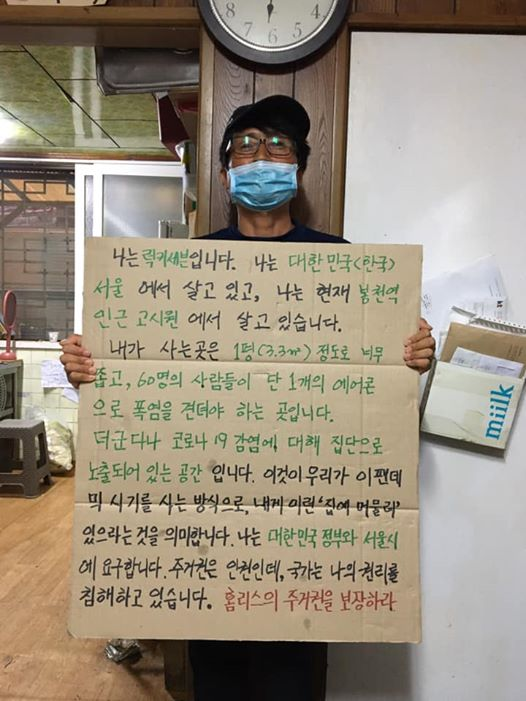 8
7
6
5
4
나는 럭키세븐입니다. 나는 대한민국(한국)
서울 에서 살고 있고, 나는 현재 봉천역
인근 고시원 에서 살고 있습니다.
내가 사는곳은 1평(3.3㎡) 정도로 너무
좁고, 60명의 사람들이 단 1개의 에어콘
으로 폭염을 견뎌야 하는 곳입니다.
더군다나 코로나19 감염에 대해 집단으로
노출되어 있는 공간 입니다. 이것이 우리가 이 팬데
믹 시기를 사는 방식으로, 내게 이런 '집에 머물러'
있으라는 것을 의미합니다. 나는 대한민국 정부와 서울시
에 요구합니다. 주거권은 인권인데, 국가는 나의 권리를
침해하고 있습니다. 홈리스의 주거권을 보장하라
miilk